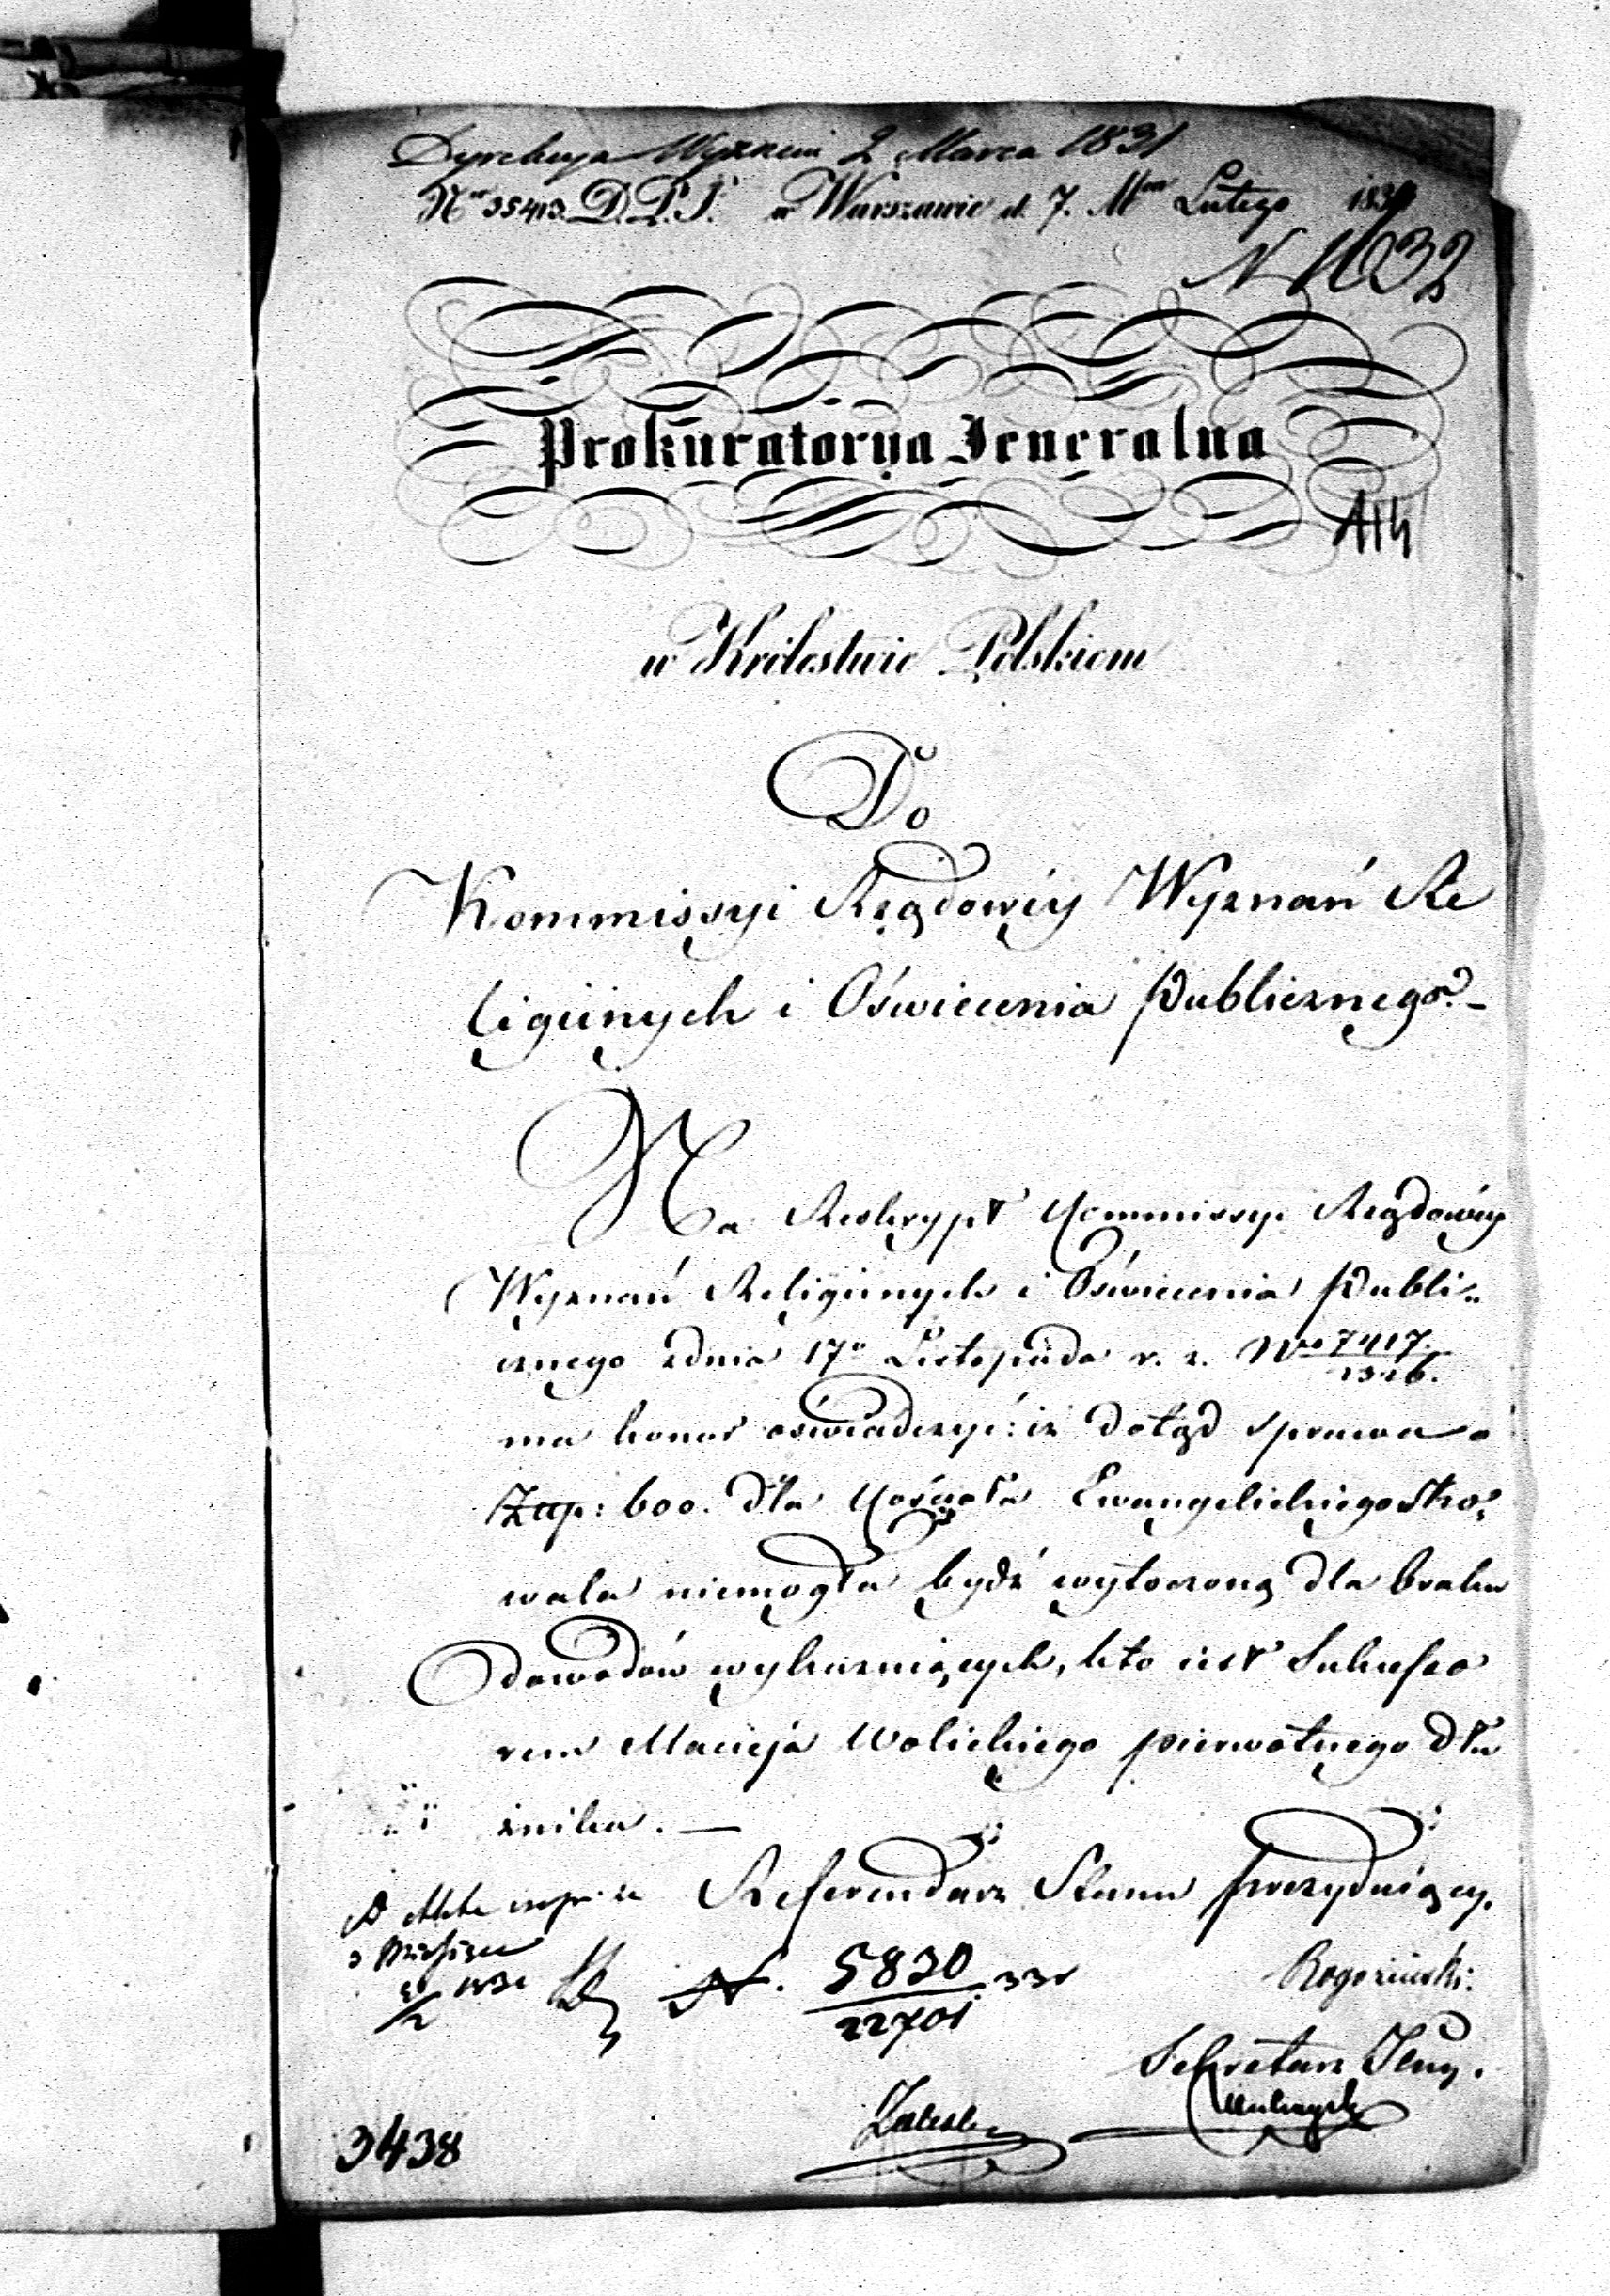 Dyrekcya Wyznań 2 Marca 1831
Nro 35413. D.P.S. w Warszawie d. 7. Mca Lutego 1831
N 1032
Prokuratorya Jeneralna
114
w Królestwie Polskiem
Do
Kommissyi Rządowéy Wyznań Re
ligiinych i Oświecenia Publicznego.-
Na Reskrypt Kommissyi Rządowéy
Wyznań Religiinych i Oświecenia Publi..
cznego zdnia 17o Listopada r. z. Nro 7417.
2326.
ma honor oświadczyć: iż dotąd sprawa o
Złtp: 600. dla Kościoła Ewangelickiego Sko..
wala niemogła bydź wytoczoną dla braku
dowodów wykazuiących, kto iest Sukcesso
rem Macieja Wolickiego pierwotnego dłu
żnika. —
Referendarz Stanu Prezyduiący.
Rogoziński.
N. 5830
22701
331
Sekretarz Jlny.
Zaleski
3438